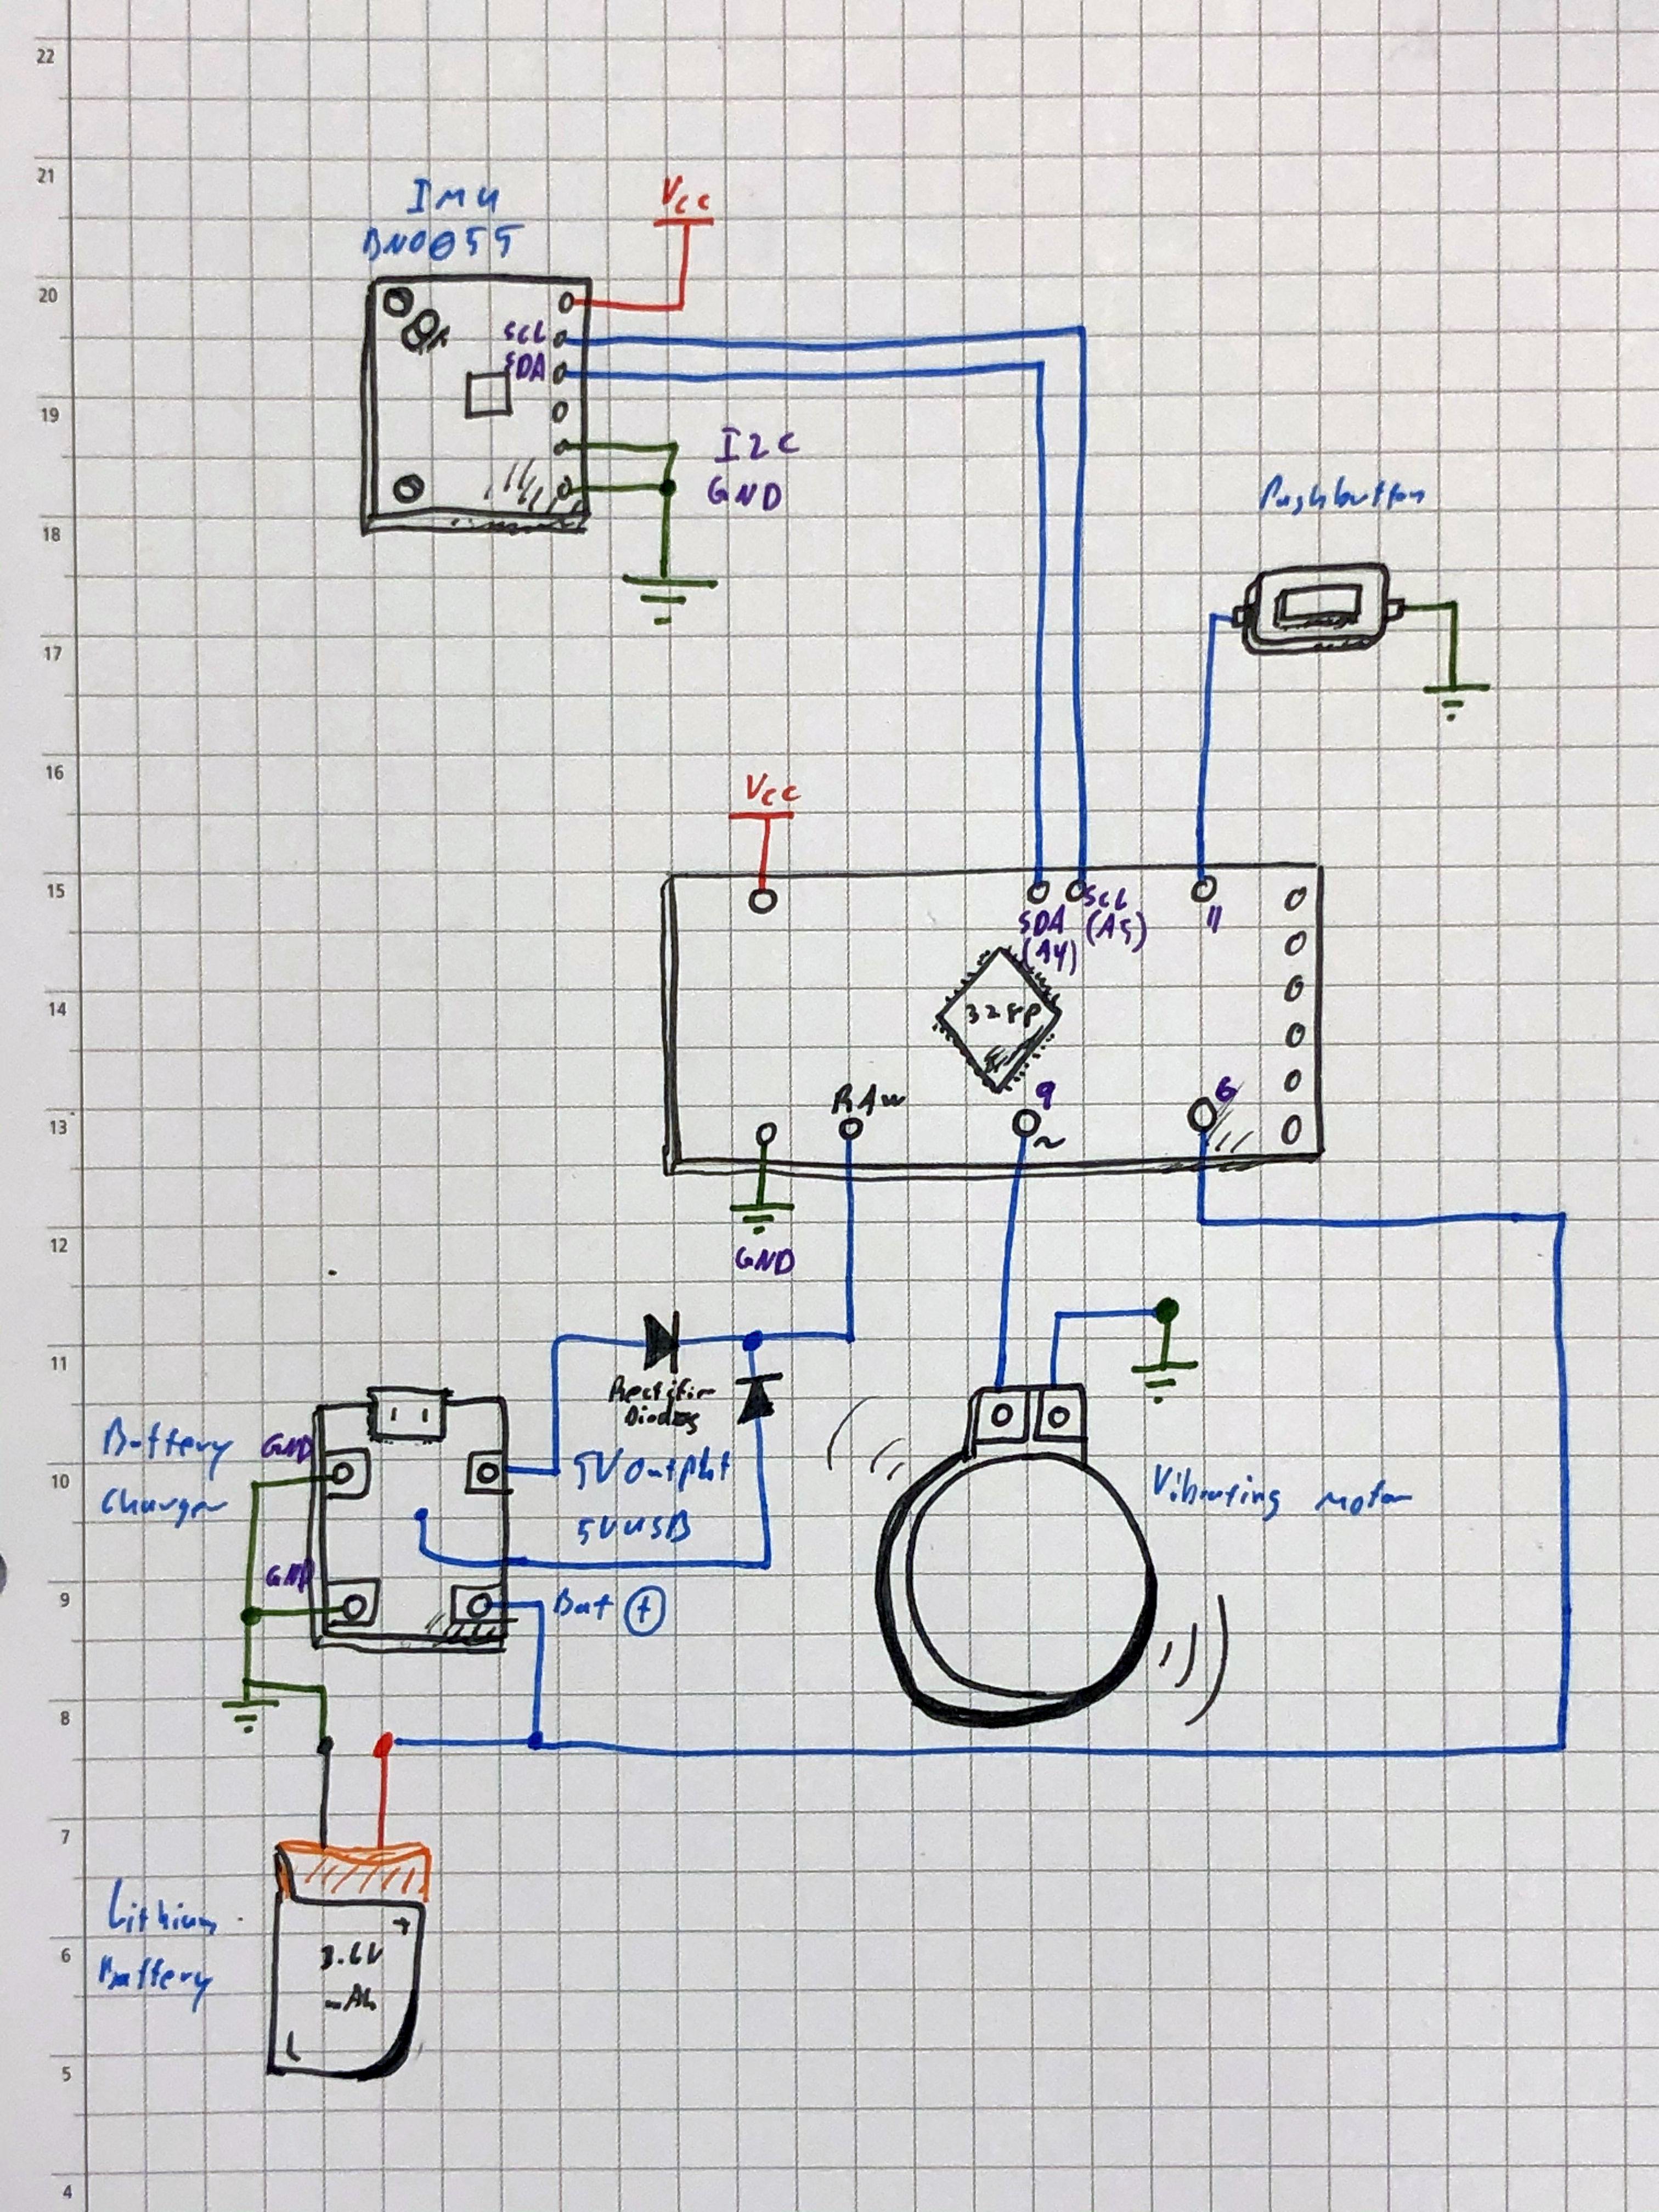 22
21
20
19
18
17
16
15
14
13
12
11
10
9
8
7
6
5
4
IMU
BNO055
Vcc
SCL
SDA
I2C
GND
Pushbutton
Vcc
SDA
(A4)
SCL
(A5)
11
328P
RAW
9
~
6
GND
Rectifier
Diodes
Battery
Charger
GND
GND
5V Output
5V USB
Bat +
Vibrating Motor
Lithium
Battery
+
3.6V
mAh